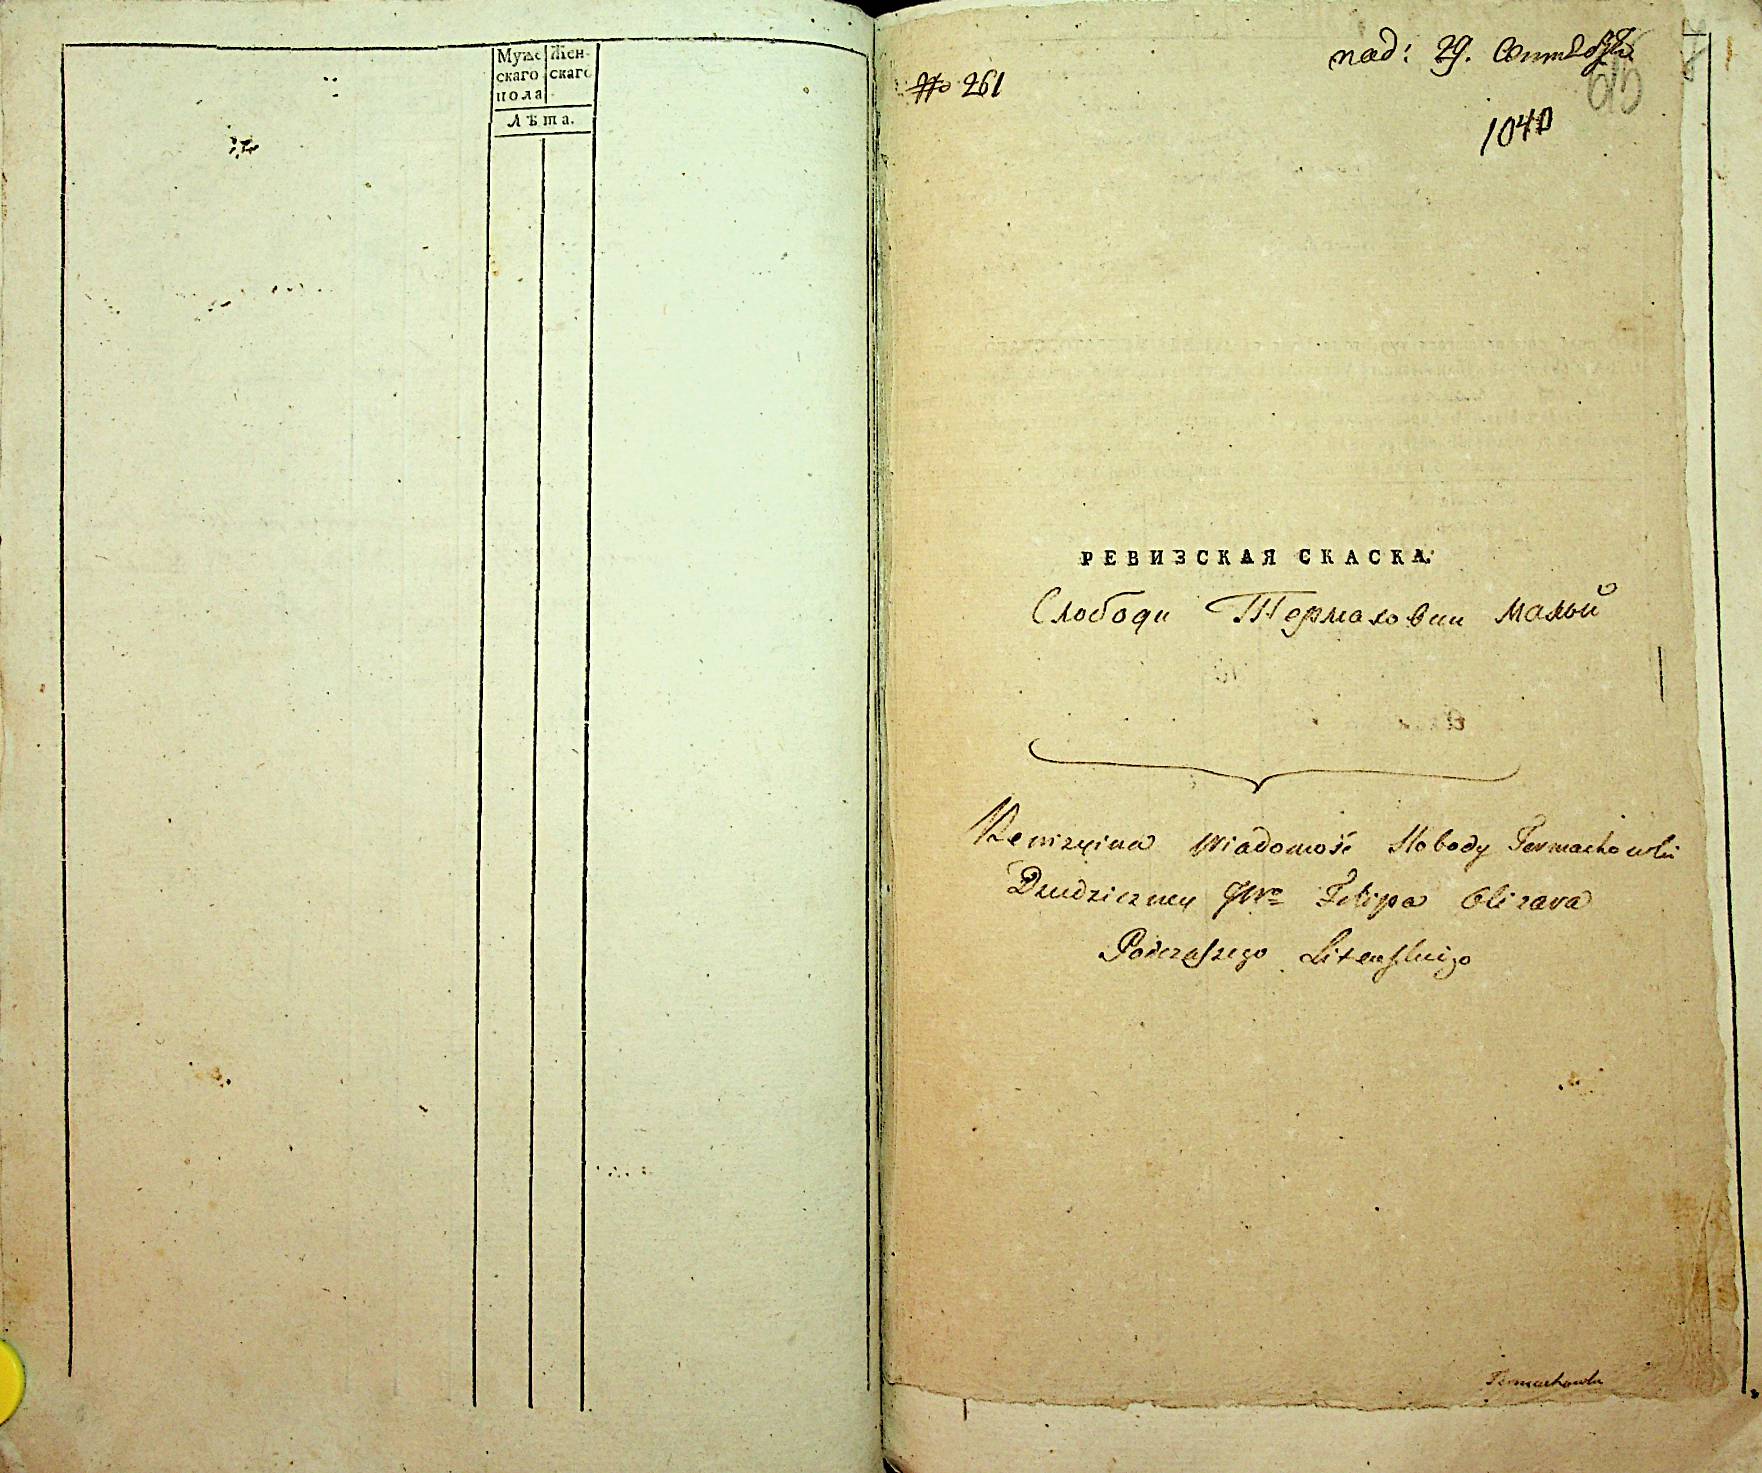 Муже Жен-
скаго скаго
пола
Лѣта.
№ 261
под: 29. Сентября
615
1040
РЕВИЗСКАЯ СКАСКА.
Слободи Термаховки Малый
Rewizyina Wiadomość Słobody Termachowki
Dziedziczney JWo Filipa Olizara
Podczaszego Litewskiego
Termachowka